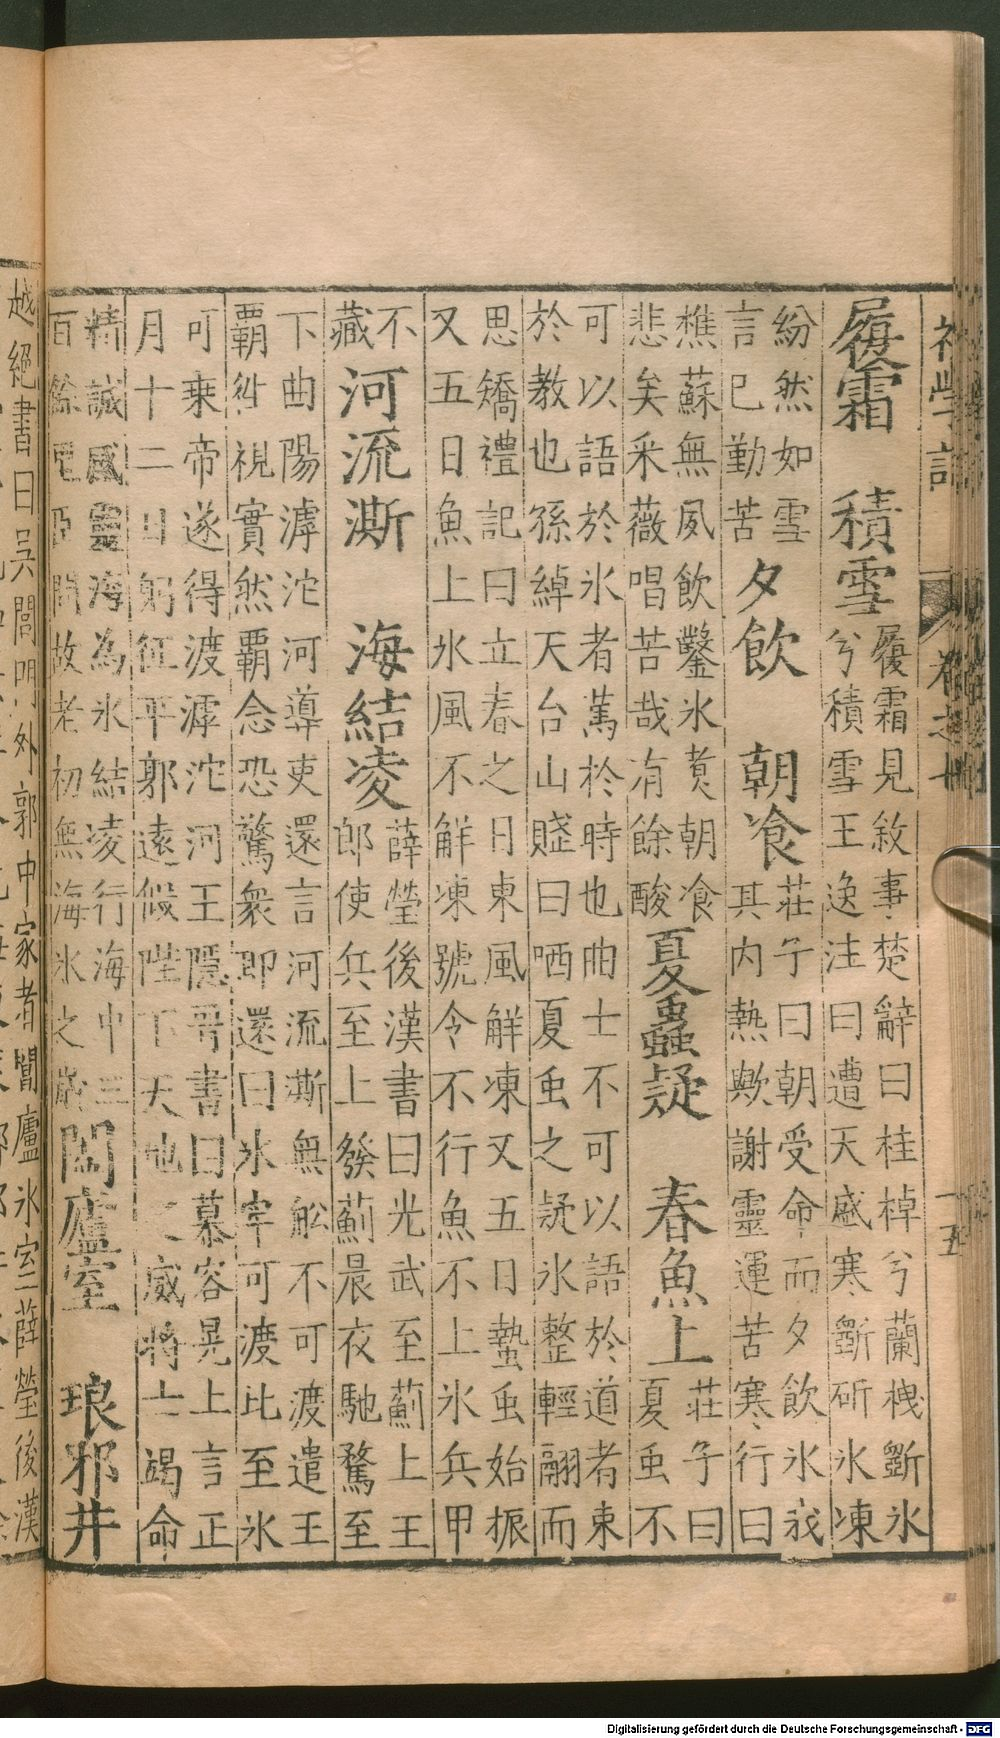 初學記 卷之七 十五
履霜 積雪
履霜見敘事楚辭曰桂棹兮蘭栧斲氷
兮積雪王逸注曰遭天盛寒斲斫氷凍
紛然如雪
言已勤苦
夕飲 朝飡
莊子曰朝受命而夕飲氷我
其内熱歟謝靈運苦寒行曰
樵蘇無夙飲鑿氷煑朝飡
悲矣采薇唱苦哉有餘酸
夏蟲疑 春魚上
莊子曰
夏虫不
可以語於氷者篤於時也曲士不可以語於道者束
於教也孫綽天台山賤曰哂夏虫之疑氷整輕翮而
思矯禮記曰立春之日東風解凍又五日蟄虫始振
又五日魚上氷風不解凍號令不行魚不上氷兵甲
不
藏
河流澌 海結凌
薛瑩後漢書曰光武至薊上王
郎使兵至上發薊晨夜馳騖至
下曲陽滹沱河導吏還言河流澌無舩不可渡遣王
覇往視實然覇念恐驚衆即還曰氷牢可渡比至氷
可乗帝遂得渡滹沱河王隱晋書曰慕容晃上言正
月十二日躬征平郭遠假陛下天地之威將士竭命
精誠感靈海為氷結凌行海中三
百餘里臣問故老初無海氷之歲
闔廬室 琅邪井
越絕書曰吳閶門外郭中冢者闔廬氷室薛瑩後漢
Digitalisierung gefördert durch die Deutsche Forschungsgemeinschaft - DFG